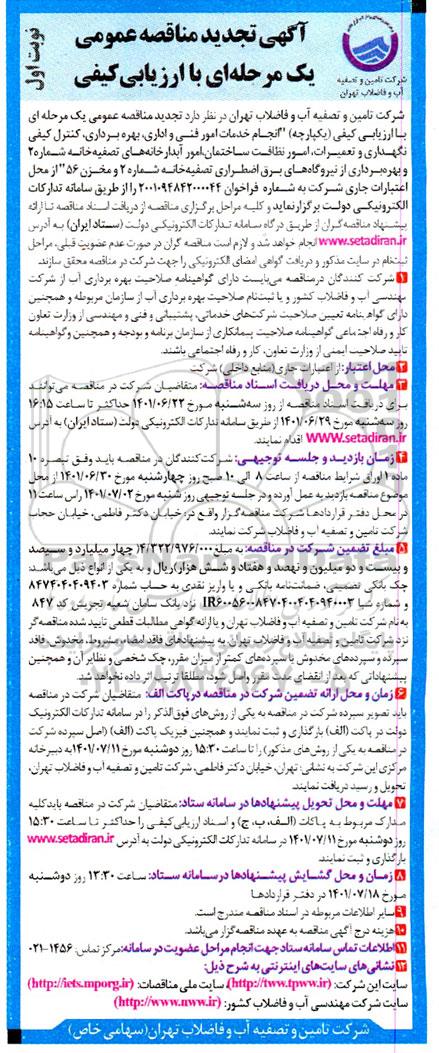 نوبت اول
آگهی تجدید مناقصه عمومی
یک مرحله‌ای با ارزیابی کیفی
شرکت تامین و تصفیه
آب و فاضلاب تهران
شرکت تامین و تصفیه آب و فاضلاب تهران در نظر دارد تجدید مناقصه عمومی یک مرحله ای
با ارزیابی کیفی (یکپارچه) "انجام خدمات امور فنی و اداری، بهره برداری، کنترل کیفی
نگهداری و تعمیرات، امور نظافت ساختمان، امور آبدارخانه‌های تصفیه‌خانه شماره۲
و بهره‌برداری از نیروگاه‌های برق اضطراری تصفیه‌خانه شماره ۲ و مخزن ۵۶" از محل
اعتبارات جاری شرکت به شماره فراخوان ۲۰۰۱۰۹۴۸۴۲۰۰۰۰۴۴ را از طریق سامانه تدارکات
الکترونیکی دولت برگزار نماید و کلیه مراحل برگزاری مناقصه از دریافت اسناد مناقصه تا ارائه
پیشنهاد مناقصه‌گران از طریق درگاه سامانه تدارکات الکترونیکی دولت (ستاد ایران) به آدرس
www.setadiran.ir انجام خواهد شد و لازم است مناقصه گران در صورت عدم عضویت قبلی، مراحل
ثبت‌نام در سایت مذکور و دریافت گواهی امضای الکترونیکی را جهت شرکت در مناقصه محقق سازند.
۱ شرکت کنندگان در مناقصه می‌بایست دارای گواهینامه صلاحیت بهره برداری آب از شرکت
مهندسی آب و فاضلاب کشور و یا ثبت‌نام صلاحیت بهره برداری آب از سازمان مربوطه و همچنین
دارای گواهینامه تعیین صلاحیت شرکت‌های خدماتی، پشتیبانی و فنی و مهندسی از وزارت تعاون
کار و رفاه اجتماعی گواهینامه صلاحیت پیمانکاری از سازمان برنامه و بودجه و همچنین و گواهینامه
تایید صلاحیت ایمنی از وزارت تعاون، کار و رفاه اجتماعی باشند.
۲ محل اعتبار: از اعتبارات جاری (منابع داخلی) شرکت
۳ مهلت و محل دریافت اسناد مناقصه: متقاضیان شرکت در مناقصه می‌توانند
برای دریافت اسناد مناقصه از روز سه‌شنبه مورخ ۱۴۰۱/۰۶/۲۲ حداکثر تا ساعت ۱۶:۱۵
روز سه‌شنبه مورخ ۱۴۰۱/۰۶/۲۹ از طریق سامانه تدارکات الکترونیکی دولت (ستاد ایران) به آدرس
WWW.setadiran.ir اقدام نمایند.
۴ زمان بازدید و جلسه توجیهی: شرکت‌کنندگان در مناقصه باید وفق تبصره ۱۰
ماده ۱ اوراق شرایط مناقصه از ساعت ۸ الی ۱۰ صبح روز چهارشنبه مورخ ۱۴۰۱/۰۶/۳۰ از محل
موضوع مناقصه بازدید به عمل آورده و در جلسه توجیهی روز شنبه مورخ ۱۴۰۱/۰۷/۰۲ راس ساعت ۱۱
در محل دفتر قراردادها شرکت مناقصه گزار واقع در: خیابان دکتر فاطمی، خیابان حجاب
شرکت تامین و تصفیه آب و فاضلاب شرکت نمایند.
۵ مبلغ تضمین شرکت در مناقصه: به مبلغ ۴/۳۲۲/۹۷۶/۰۰۰ چهار میلیارد و سیصد
و بیست و دو میلیون و نهصد و هفتاد و شش هزار ریال به یکی از انواع ذیل می‌باشد:
چک بانکی تضمینی، ضمانت‌نامه بانکی و یا واریز نقدی به حساب شماره ۸۴۷۴۰۴۰۴۰۹۴۰۳
و شماره شبا نزد بانک سامان شعبه تجریش کد ۸۴۷
به نام شرکت تامین و تصفیه آب و فاضلاب تهران و یا ارائه گواهی مطالبات قطعی تایید شده مناقصه گر
نزد شرکت تامین و تصفیه آب و فاضلاب تهران به پیشنهادهای فاقد امضاء، مشروط، مخدوش، فاقد
سپرده و سپرده‌های مخدوش یا سپرده‌های کمتر از میزان مقرر، چک شخصی و نظایر آن و همچنین
پیشنهاداتی که بعد از انقضای مدت مقرر واصل شود، مطلقا ترتیب اثر داده نخواهد شد.
۶ زمان و محل ارائه تضمین شرکت در مناقصه در پاکت الف: متقاضیان شرکت در مناقصه
باید تصویر سپرده شرکت در مناقصه به یکی از روش‌های فوق‌الذکر را در سامانه تدارکات الکترونیک
دولت در پاکت (الف) بارگذاری و ثبت نمایند و همچنین فیزیک پاکت (الف) (اصل سپرده شرکت
در مناقصه به یکی از روش‌های مذکور) را تا ساعت ۱۵:۳۰ روز دوشنبه مورخ ۱۴۰۱/۰۷/۱۱ به دبیرخانه
مرکزی این شرکت به نشانی: تهران، خیابان دکتر فاطمی، شرکت تامین و تصفیه آب و فاضلاب تهران،
تحویل و رسید دریافت نمایند.
۷ مهلت و محل تحویل پیشنهادها در سامانه ستاد: متقاضیان شرکت در مناقصه باید کلیه
مدارک مربوط به پاکات (الف، ب، ج) و اسناد ارزیابی کیفی را حداکثر تا ساعت ۱۵:۳۰
روز دوشنبه مورخ ۱۴۰۱/۰۷/۱۱ در سامانه تدارکات الکترونیکی دولت به آدرس www.setadiran.ir
بارگذاری و ثبت نمایند.
۸ زمان و محل گشایش پیشنهادها در سامانه ستاد: ساعت ۱۳:۳۰ روز دوشنبه
مورخ ۱۴۰۱/۰۷/۱۸ در دفتر قراردادها
۹ سایر اطلاعات مربوطه در اسناد مناقصه مندرج است.
۱۰ هزینه درج آگهی مناقصه به عهده مناقصه گزار می‌باشد.
۱۱ اطلاعات تماس سامانه ستاد جهت انجام مراحل عضویت در سامانه: مرکز تماس: ۱۴۵۶-۰۲۱
۱۲ نشانی‌های سایت‌های اینترنتی به شرح ذیل:
سایت این شرکت: (http://tww.tpww.ir)، سایت ملی مناقصات: (http://iets.mporg.ir)
سایت شرکت مهندسی آب و فاضلاب کشور: (http://www.nww.ir)
شرکت تامین و تصفیه آب و فاضلاب تهران (سهامی خاص)